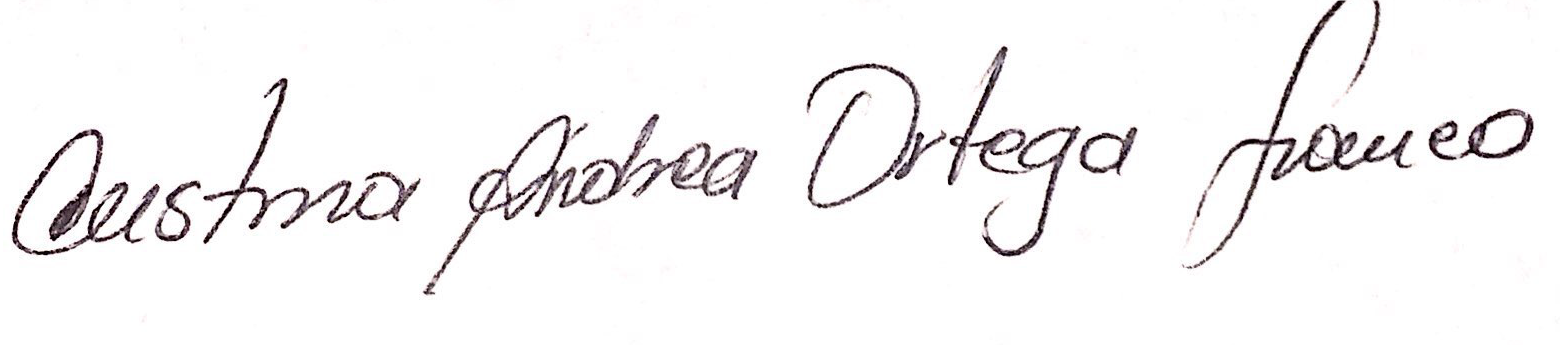 Cristina Andrea Ortega Franco